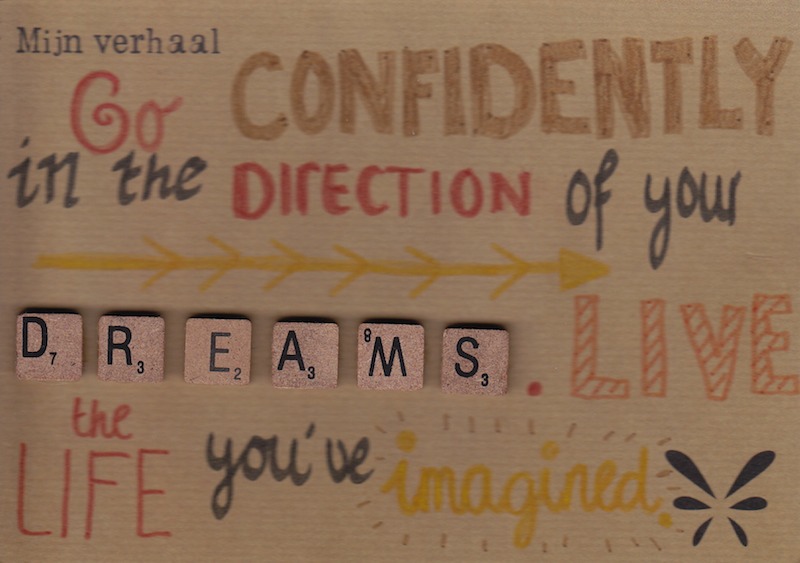 Mijn verhaal
Go CONFIDENTLY
in the DIRECTION of your
D7 R3 E2 A3 M8 S3 . LIVE
the
LIFE you've imagined.